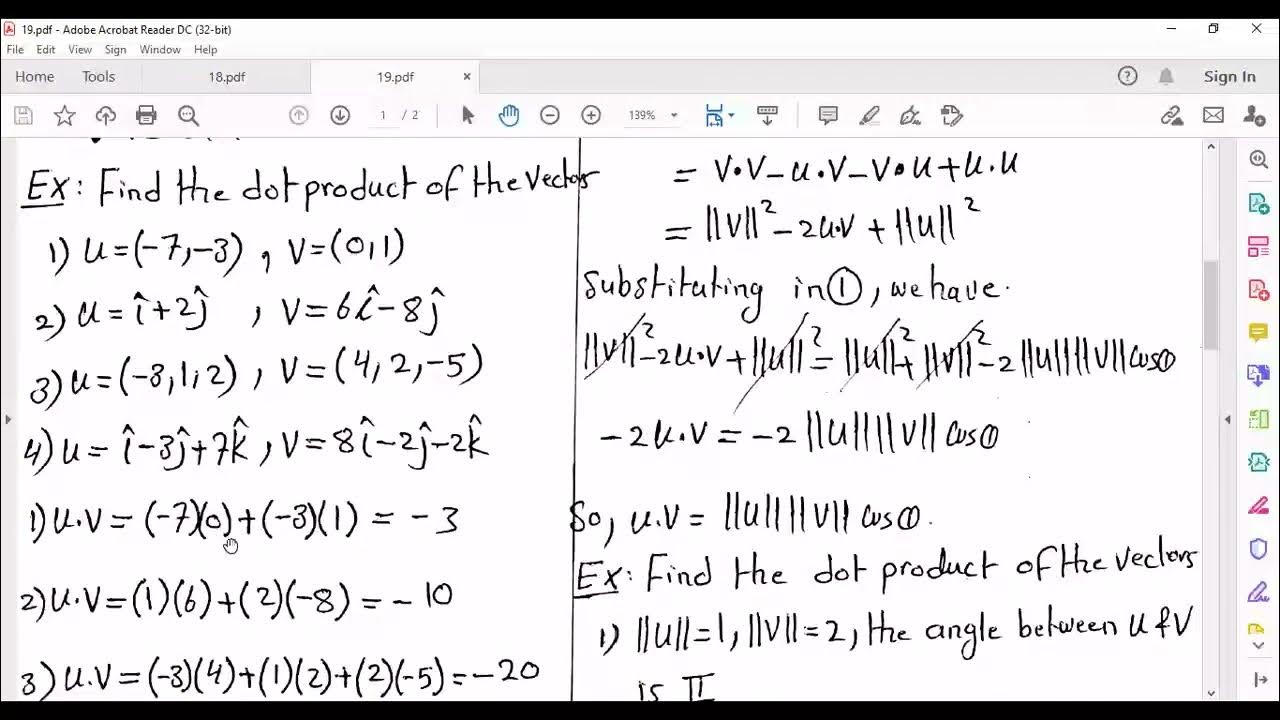 19.pdf - Adobe Acrobat Reader DC (32-bit)
File Edit View Sign Window Help
Home Tools 18.pdf 19.pdf × Sign In
1 / 2 139%
Ex: Find the dot product of the vectors
1) u=(-7,-3) , v=(0,1)
2) u= î+2ĵ , v= 6î-8ĵ
3) u=(-3,1,2) , v= (4,2,-5)
4) u= î-3ĵ+7k̂, v= 8î-2ĵ-2k̂
1) u.v= (-7)(0)+(-3)(1) = -3
2) u.v=(1)(6)+(2)(-8) = -10
3) u.v=(-3)(4)+(1)(2)+(2)(-5)=-20
= v•v-u•v-v•u+u.u
= ||v||²-2u.v+||u||²
Substituting in ①, we have.
||v||²-2u•v+||u||²=||u||²+||v||²-2||u||||v||cosθ
-2u.v= -2||u||||v||cosθ
So, u.v= ||u||||v||cosθ.
Ex: Find the dot product of the vectors
1) ||u||=1, ||v||=2, the angle between u & v
is